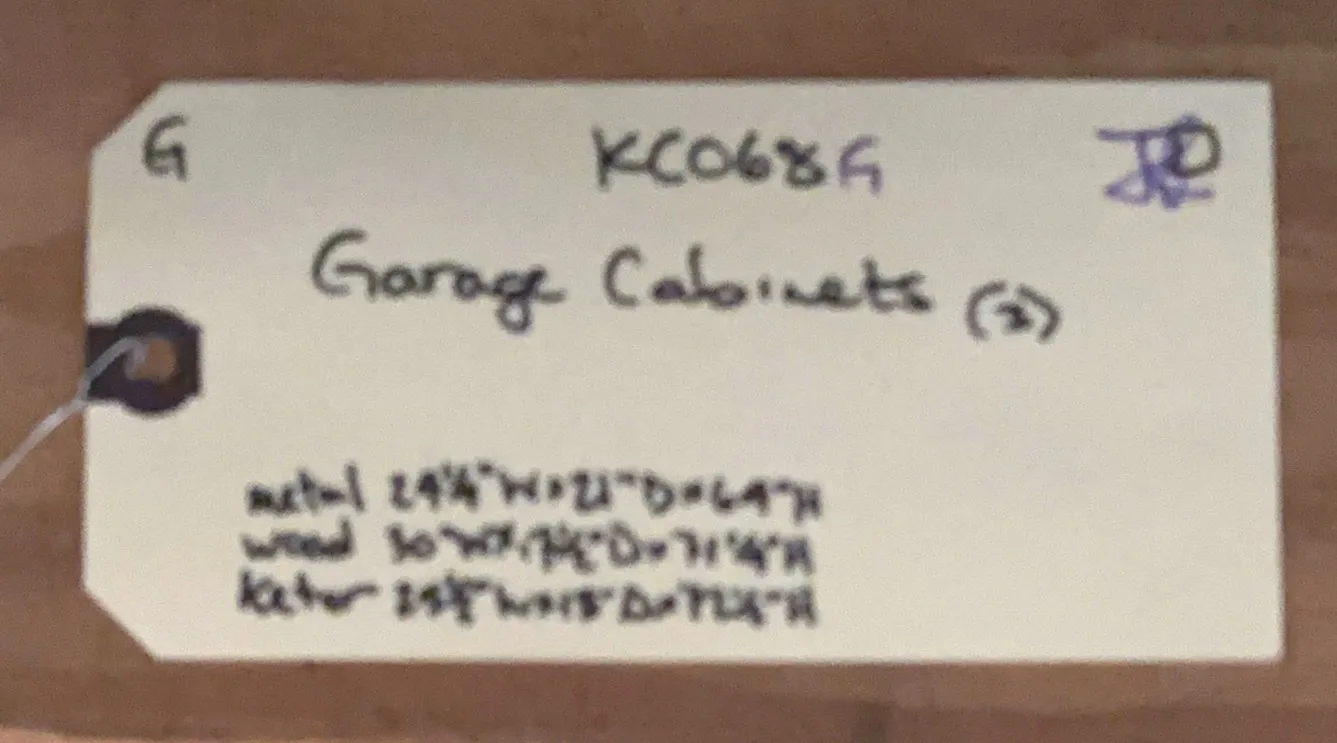 G KC068G D
Garage Cabinets
metal 24¼"W × 21"D × 64"H
wood 30"W × D × 71¼"H
Keter W × 18"D × H